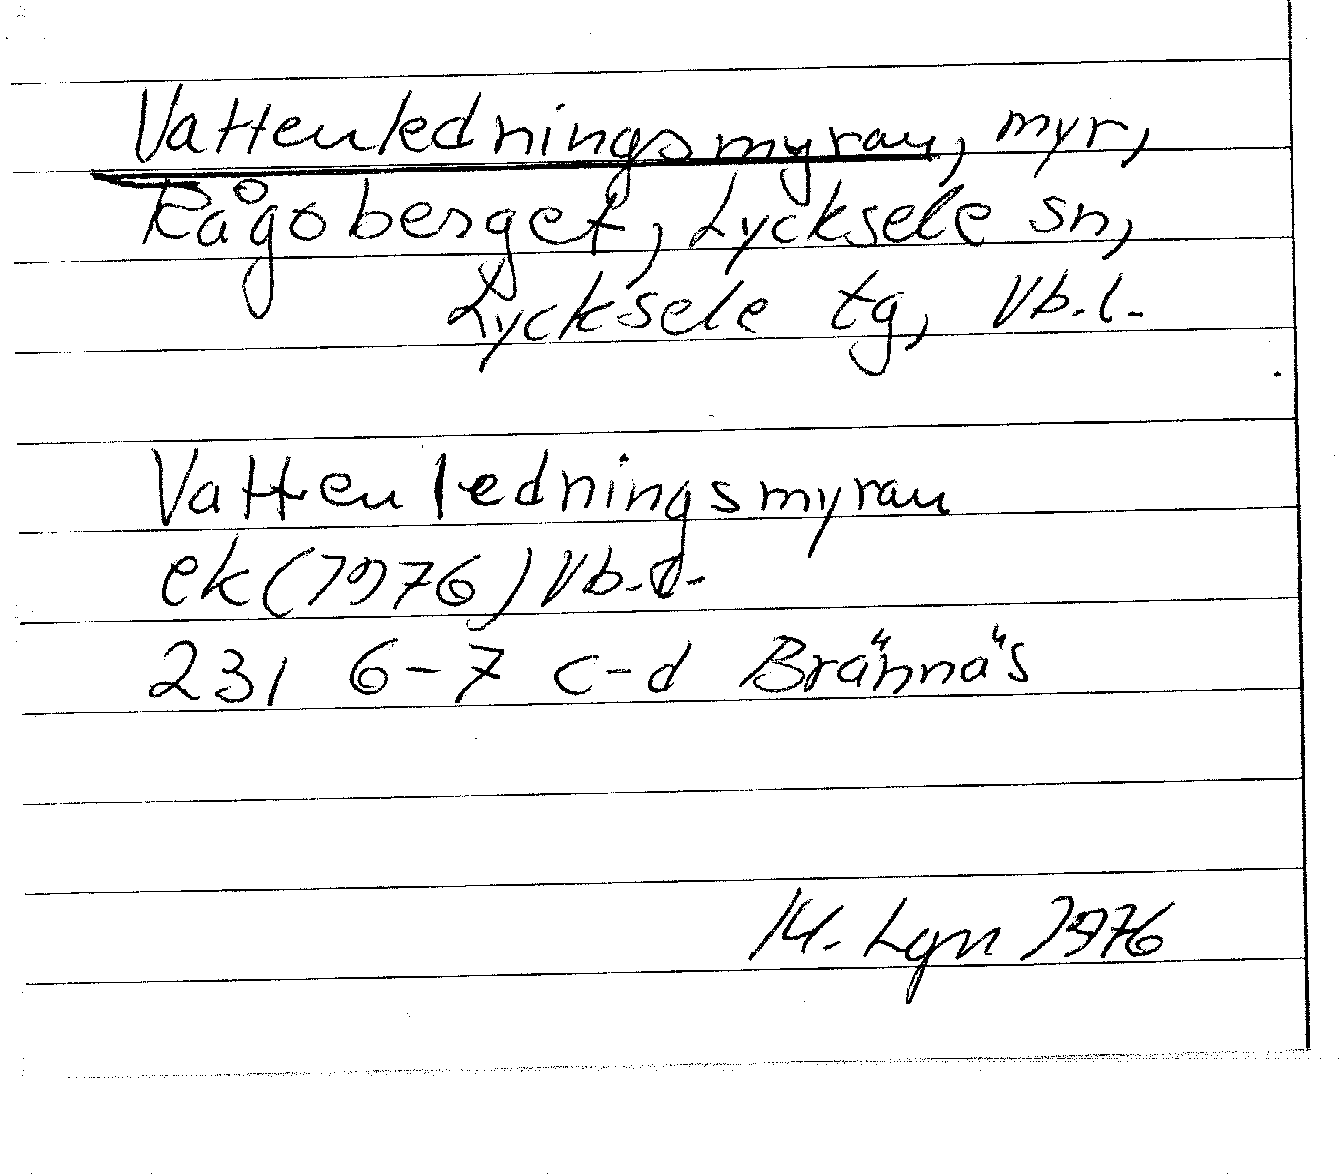 Vattenledningsmyran, myr,
Rågoberget, Lycksele sn,
Lycksele tg, Vb.l.
Vattenledningsmyran
ek (1976) Vb.l.
23I 6-7 c-d Brännäs
Lgn 1976